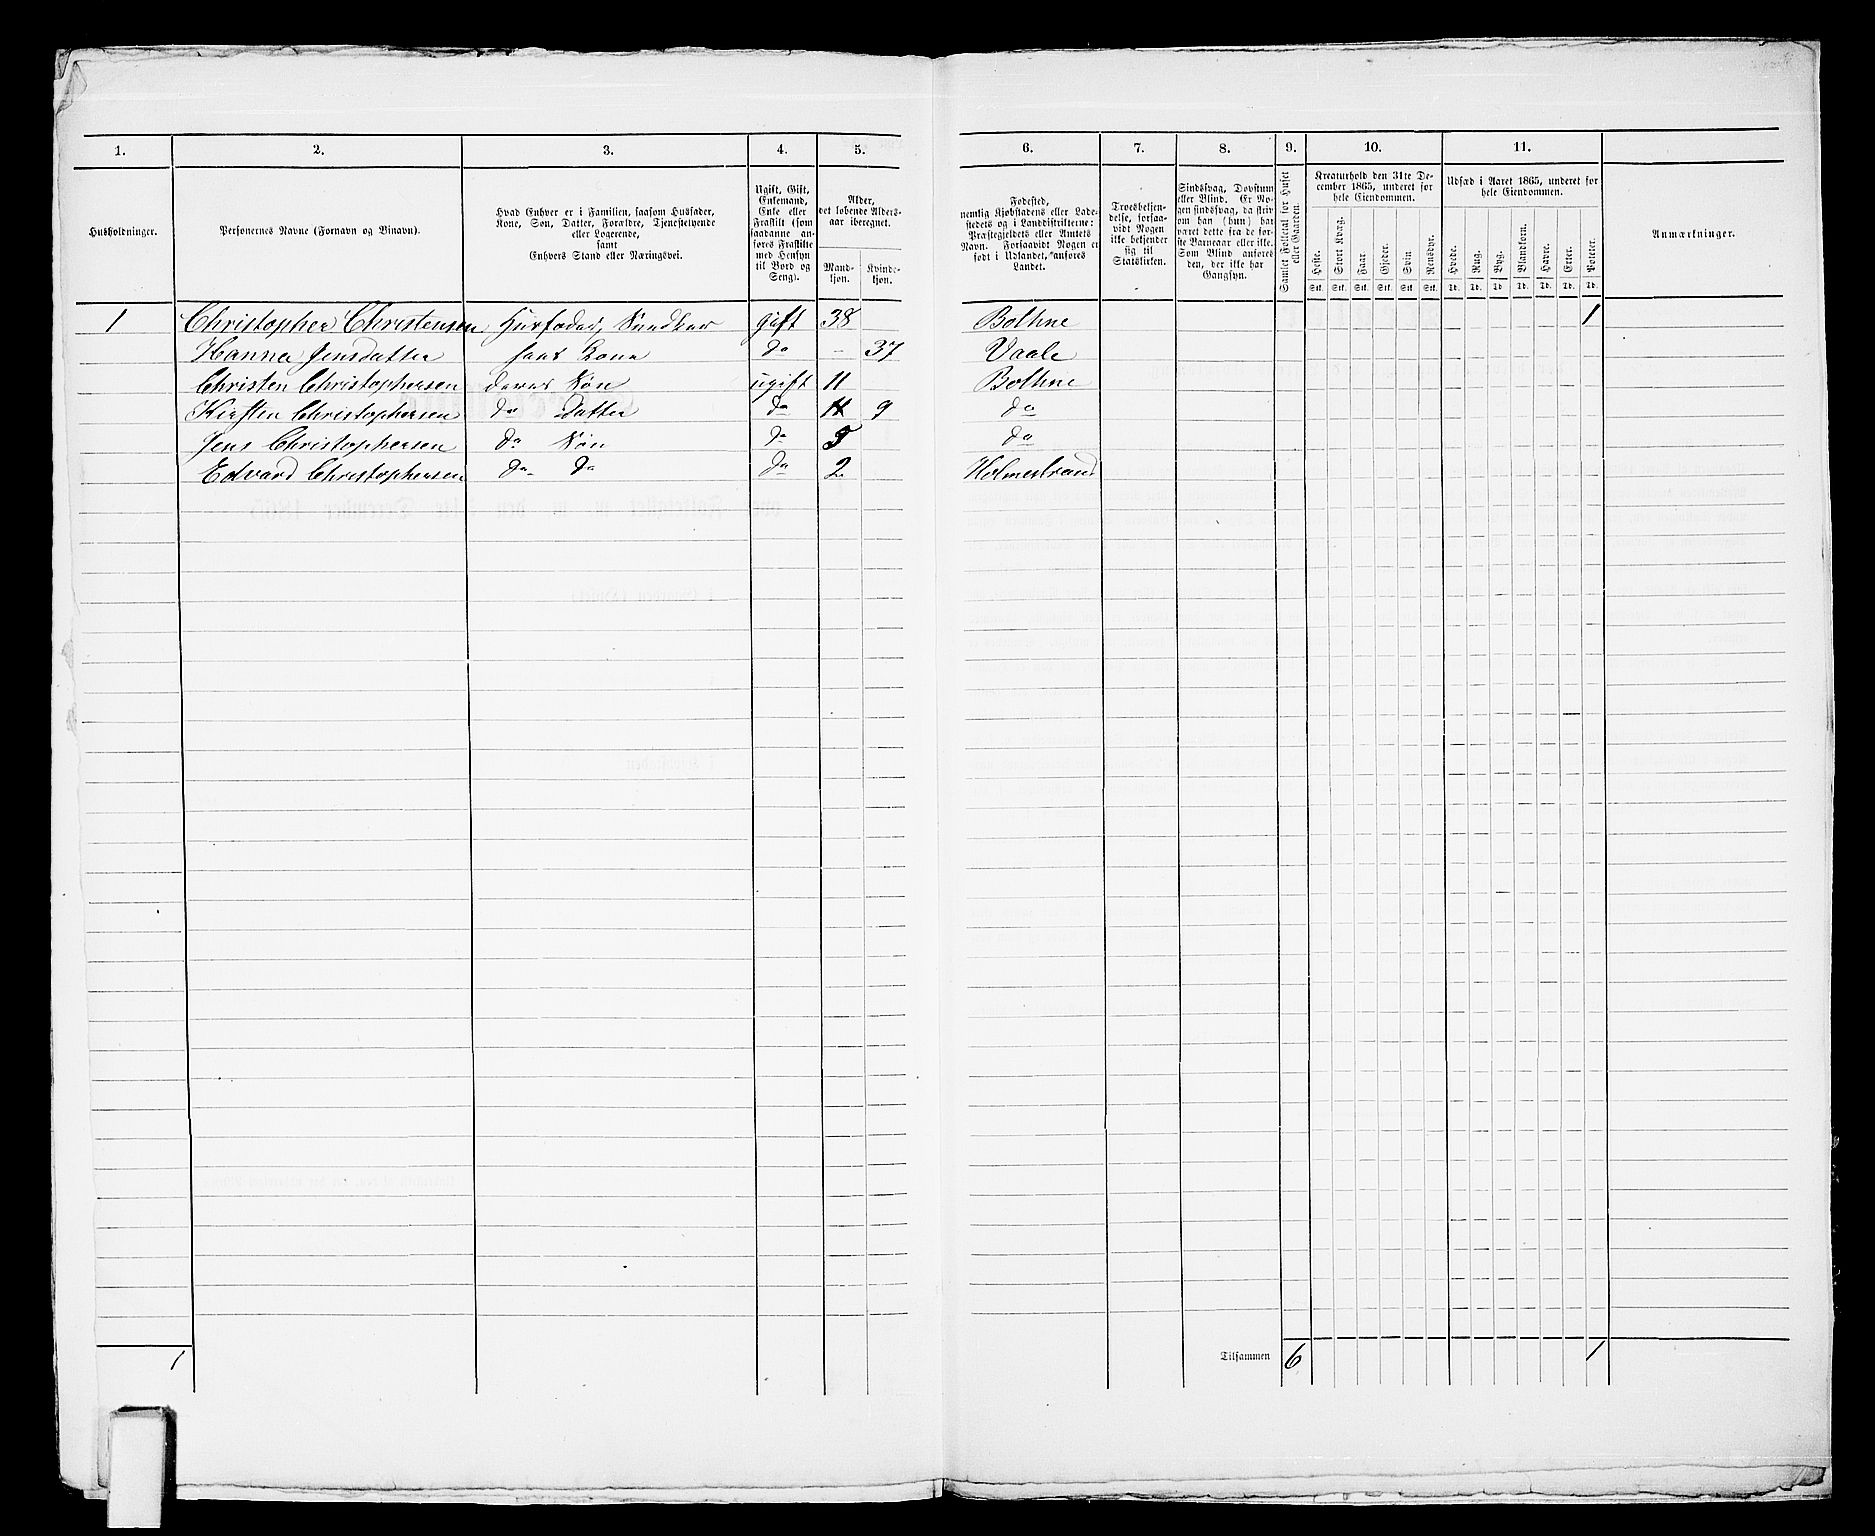 1. 2. 3. 4. 5. 6. 7. 8. 9. 10. 11.
Husholdninger.
Personernes Navne (Fornavn og Binavn).
Hvad Enhver er i Familien, saasom Husfader,
Kone, Søn, Datter, Forældre, Tjenestetyende
eller Logerende,
samt
Enhvers Stand eller Næringsvei.
Ugift, Gift,
Enkemand,
Enke eller
Fraskilt (som
saadanne an-
føres Fraskilte
med Hensyn
til Bord og
Seng).
Alder,
det løbende Alders-
aar iberegnet.
Mand-
kjøn.
Kvinde-
kjøn.
Fødested,
nemlig Kjøbstadens eller Lade-
stedets og i Landdistrikterne:
Præstegjeldets eller Amtets
Navn. Forsaavidt Nogen er
født i Udlandet, anføres
Landet.
Troesbekjen-
delse, forsaa-
vidt Nogen
ikke bekjender
sig til
Statskirken.
Sindssvag, Døvstum
eller Blind. Er No-
gen sindssvag, da skriv
om han (hun) har
været dette fra de før-
ste Barneaar eller ikke.
Som Blind anføres
den, der ikke har
Gangsyn.
Samlet Folketal for Huset
eller Gaarden.
Kreaturhold den 31te De-
cember 1865, underet for
hele Eiendommen.
Heste. Stort Kvæg. Faar. Gjeder. Svin Rensdyr.
Stk. Stk. Stk. Stk. Stk. Stk.
Udsæd i Aaret 1865, underet for
hele Eiendommen.
Hvede. Rug. Byg. Blandkorn. Havre. Erter. Poteter.
Td. Td. Td. Td. Td. Td. Td.
Anmærkninger.
1 Christopher Christensen Husfader, gift 38 Bothne 1
Hanna Jensdatter hans Kone do - 37 Vaale
Christen Christophersen deres Søn ugift 11 Bothne
Kirsten Christophersen do Datter do 9 do
Jens Christophersen do Søn do 5 do
Edvard Christophersen do do do 2 Holmestrand
1 Tilsammen 6 1